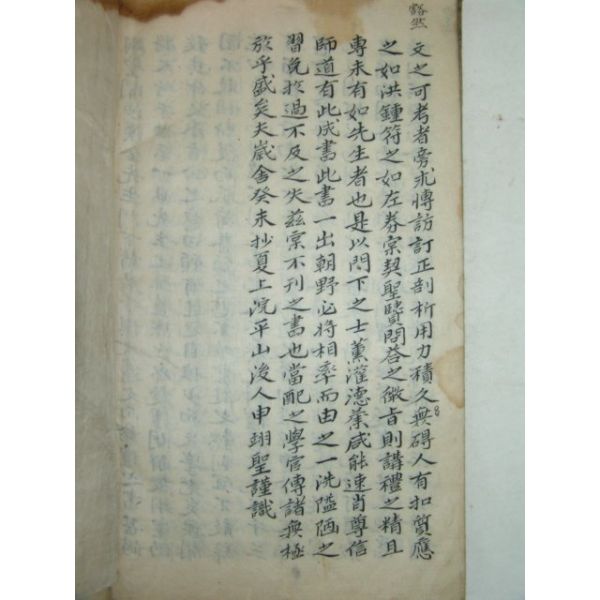 豁然
文之可考者旁求博訪訂正剖析用力積久無碍人有扣質應
之如洪鍾符之如左券宗契聖賢問荅之微旨則講禮之精且
專未有如先生者也是以門下之士薰灌德業咸能速肖尊信
師道有此成書此書一出朝野必將相率而由之一洗隘陋之
習免於過不及之失玆宗不刊之書也當配之學官傳諸無極
於乎盛矣夫歲舍癸未抄夏上浣平山後人申翊聖謹識